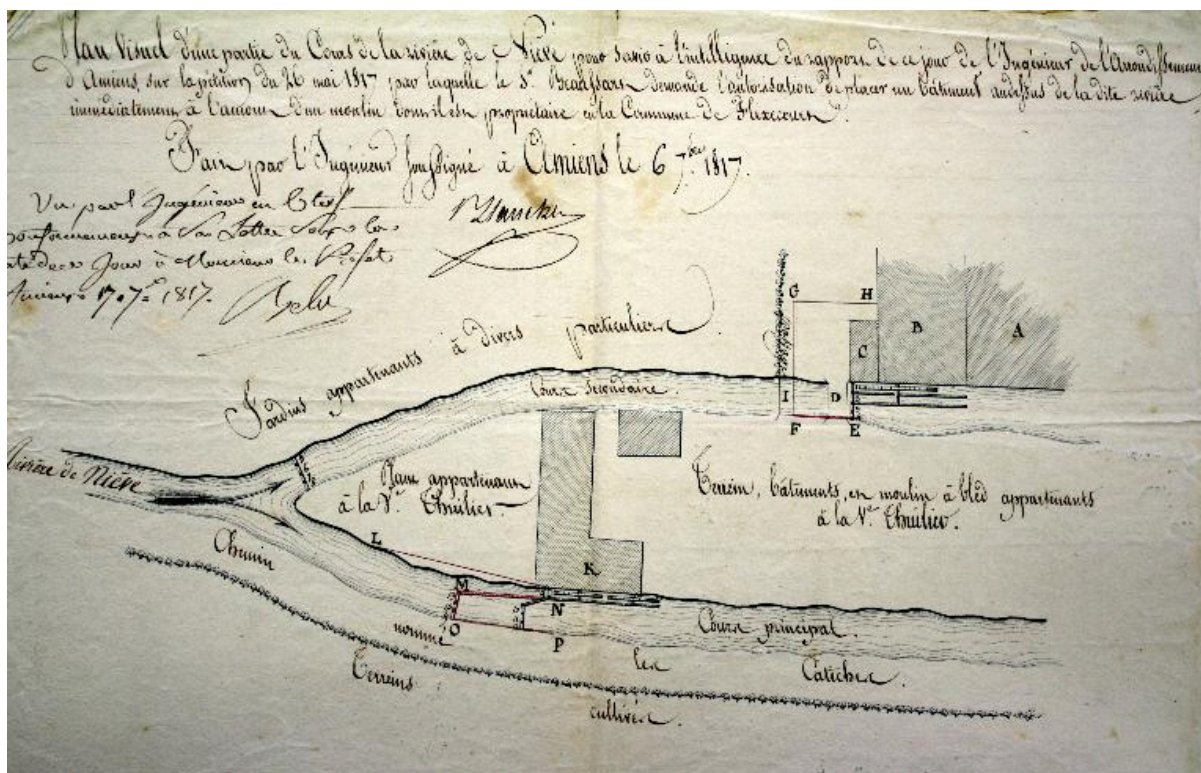 Plan Visuel d'une partie du Cours de la rivière de Nièvre pour servir à l'intelligence du rapport de ce jour de l'Ingénieur de l'Arrondissement
d'Amiens, sur la pétition du 26 mai 1817 par laquelle le Sr. demande l'autorisation de placer un bâtiment audessus de la dite rivière
immédiatement à l'amont d'un moulin dont il est propriétaire en la Commune de Flixecourt.
Fait par l'Ingénieur soussigné à Amiens le 6 7.bre 1817.
Vu par l'Ingénieur en Chef
conformément à sa Lettre sous la
date de ce Jour à Monsieur le Préfet
Amiens 17 7.bre 1817.
Jardins appartenants à divers particuliers
Cours secondaire.
G H
B A
C
I D
F E
Rivière de Nièvre
appartenant
à la Ve. Thuilier
Terrein, bâtiments, et moulin à bled appartenants
à la Ve. Thuilier.
Chemin
L
K
M
N
O
P
nommé
Cours principal.
les
Catiches.
Terreins
cultivés.